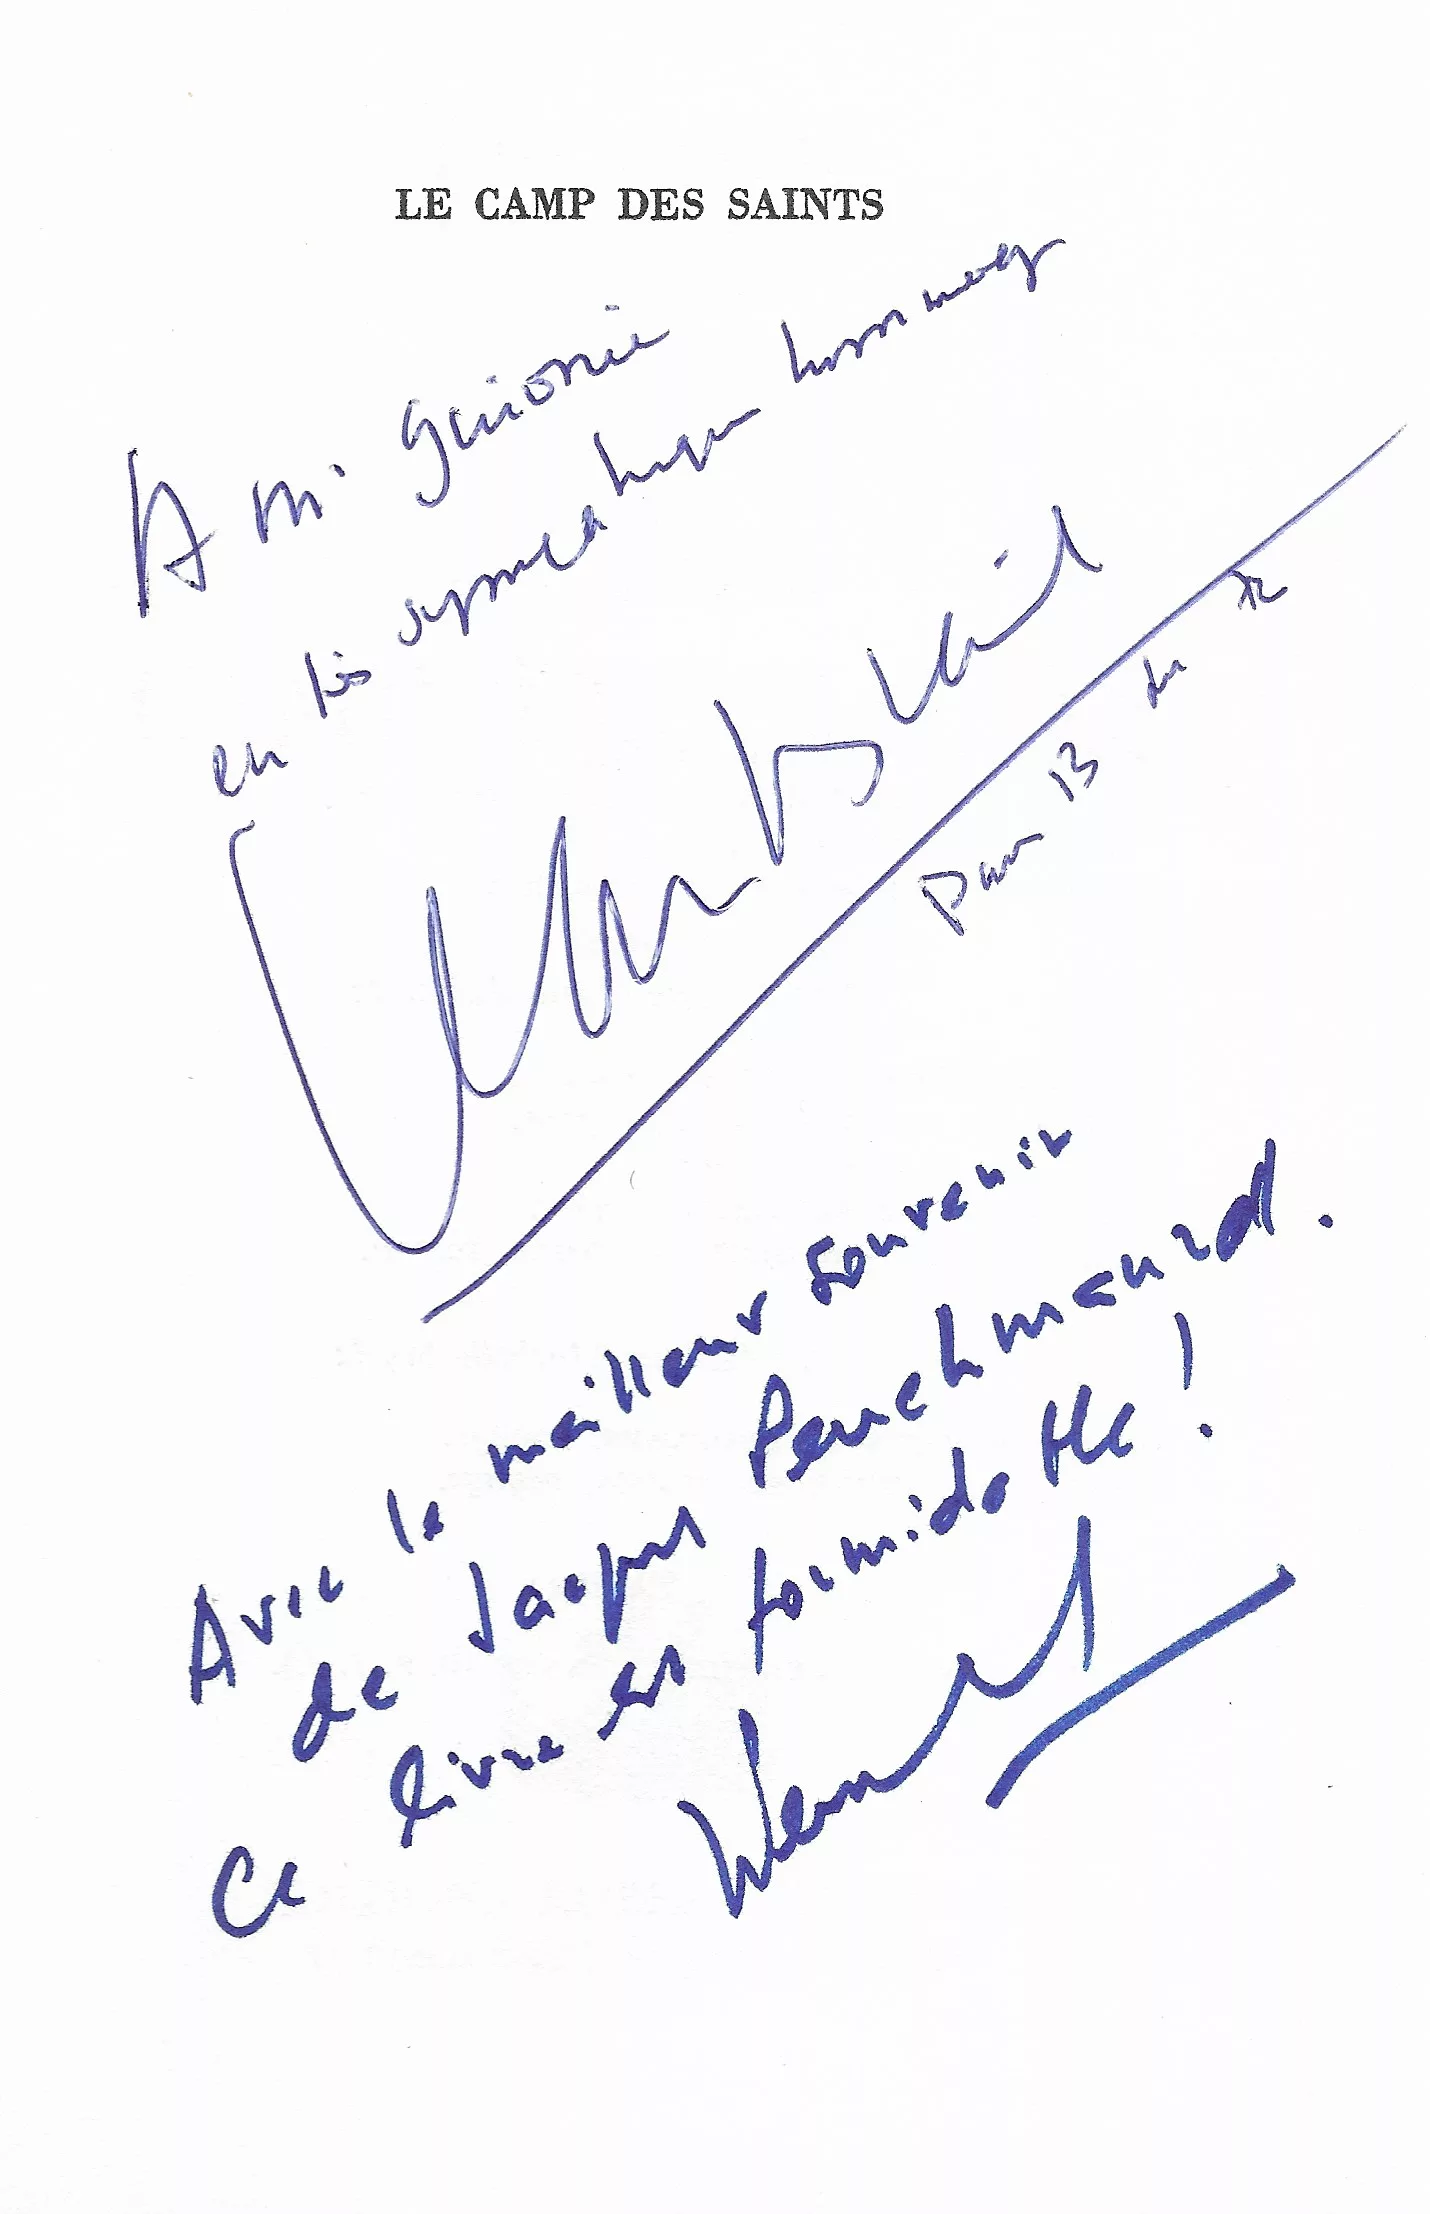 LE CAMP DES SAINTS
A Mr Guionie
en très sympathique hommage
Paris 13 72
Avec le meilleur souvenir
de Jacques Peuchmaurd.
Ce livre est formidable !